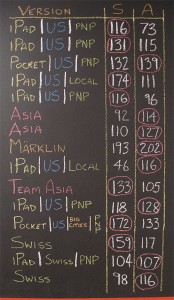 Version S A
iPad|US|PNP 116 73
iPad|US|PNP 131 115
Pocket|US|PNP 132 139
iPad|US|Local 174 111
iPad|US|PNP 116 96
Asia 92 114
Asia 110 127
Märklin 193 202
iPad|US|Local 46 116
Team Asia 133 105
iPad|US|PNP 118 128
Pocket|US|Big Cities|PNP 172 133
Swiss 159 117
iPad|Swiss|PNP 104 107
Swiss 98 116